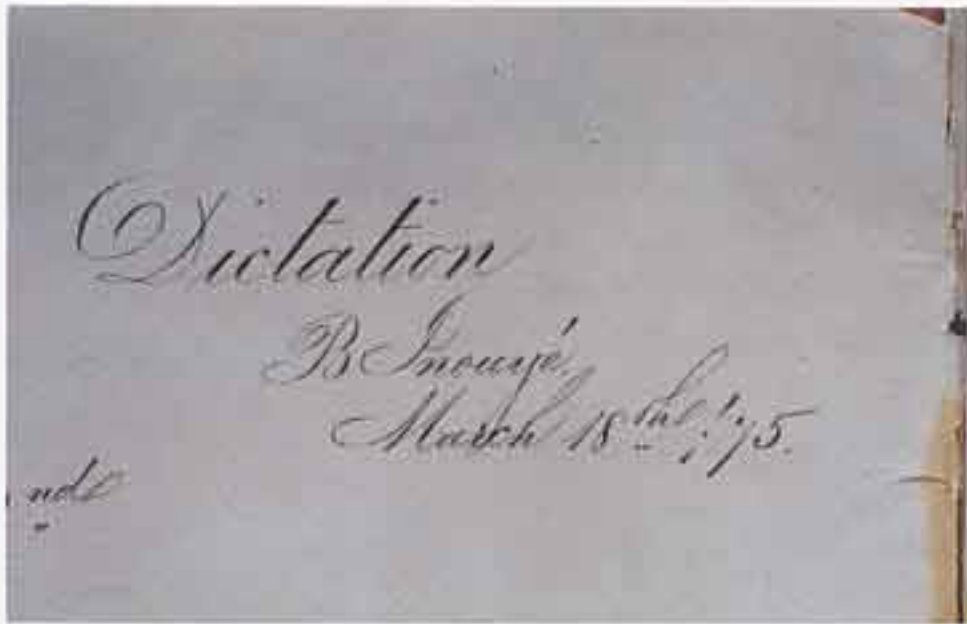 Dictation
B Inouyé.
March 18th, '75.
nd